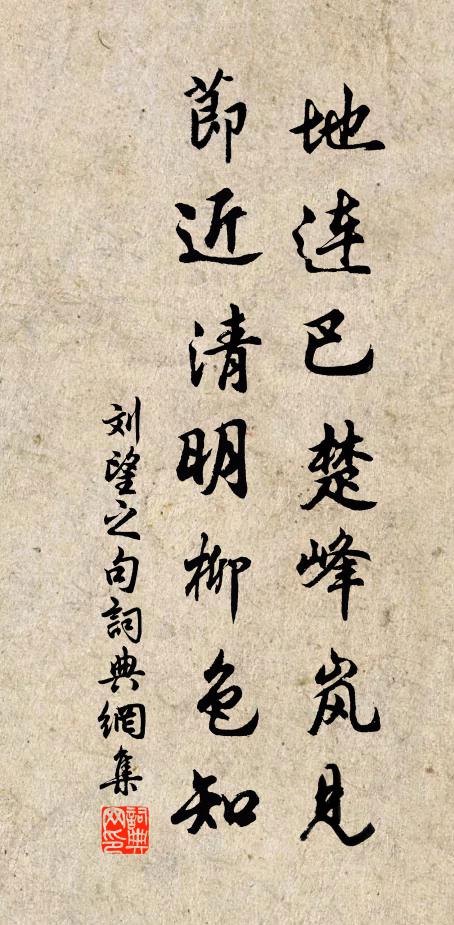 地连巴楚峰岚见
節近清明柳色知
刘望之句詞典網集
詞典网印